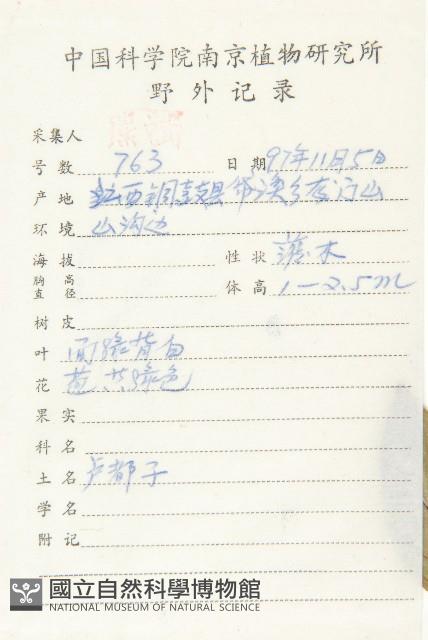 中国科学院南京植物研究所
野外记录
采集人
号数 763 日期 97年11月5日
产地 江西铜鼓县 山
环境 山沟边
海拔 性状 灌木
胸高直径 体高 1—2.5m
树皮
叶 面绿背白
花 黄绿色
果实
科名
土名 卢都子
学名
附记
國立自然科學博物館
NATIONAL MUSEUM OF NATURAL SCIENCE